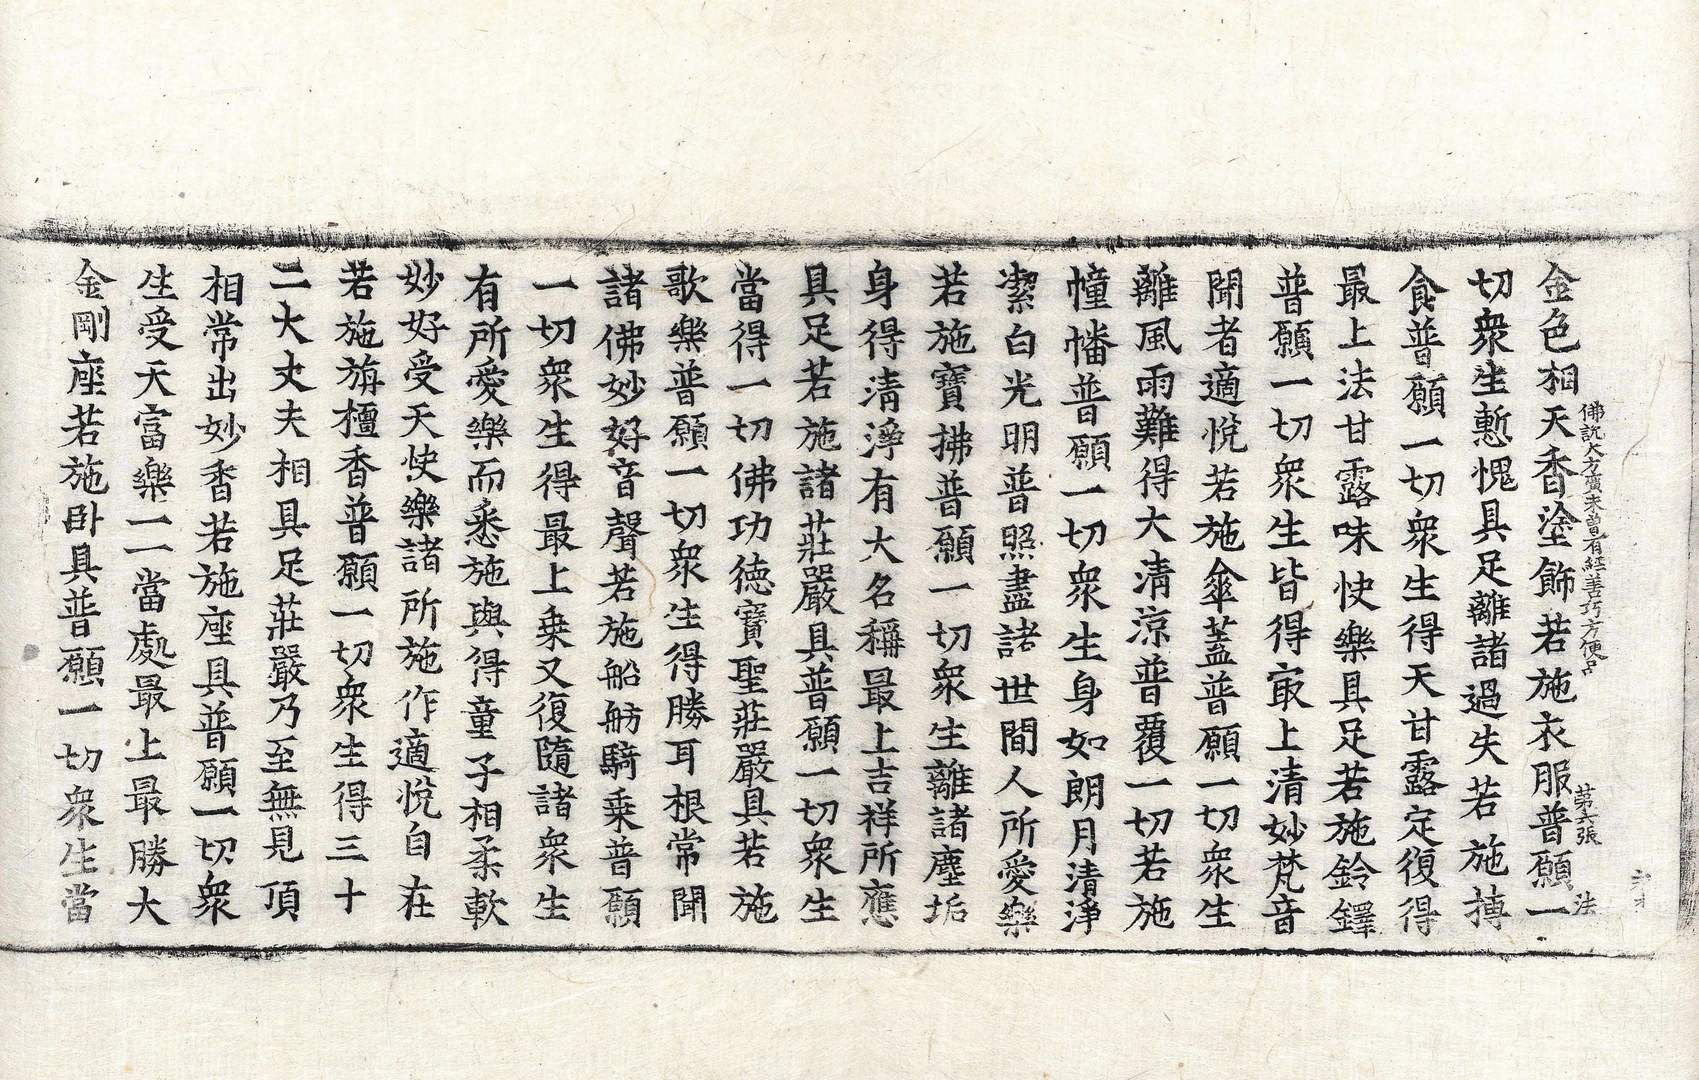 金色相天香塗飾若施衣服普願一
佛說大方廣未曾有經善巧方便品 第六張 法
切衆生慙愧具足離諸過失若施摶
食普願一切衆生得天甘露定復得
最上法甘露味快樂具足若施鈴鐸
普願一切衆生皆得㝡上清妙梵音
聞者適悅若施傘蓋普願一切衆生
離風雨難得大清涼普覆一切若施
幢幡普願一切衆生身如朗月清淨
潔白光明普照盡諸世間人所愛樂
若施寶拂普願一切衆生離諸塵垢
身得清淨有大名稱最上吉祥所應
具足若施諸莊嚴具普願一切衆生
當得一切佛功德寶聖莊嚴具若施
歌樂普願一切衆生得勝耳根常聞
諸佛妙好音聲若施船舫騎乘普願
一切衆生得最上乘又復隨諸衆生
有所愛樂而悉施與得童子相柔軟
妙好受天快樂諸所施作適悅自在
若施旃檀香普願一切衆生得三十
二大丈夫相具足莊嚴乃至無見頂
相常出妙香若施座具普願一切衆
生受天富樂一一當處最上最勝大
金剛座若施卧具普願一切衆生當